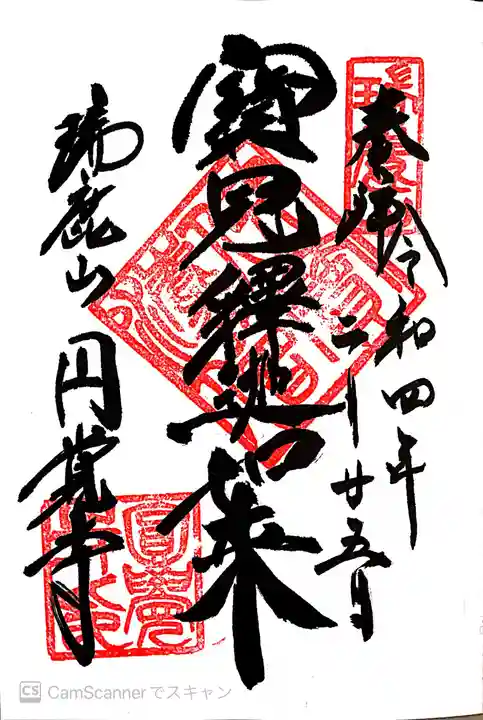 奉拝 令和四年
二月廿五日
寳冠釋迦如来
瑞鹿山 円覚寺
CamScannerでスキャン